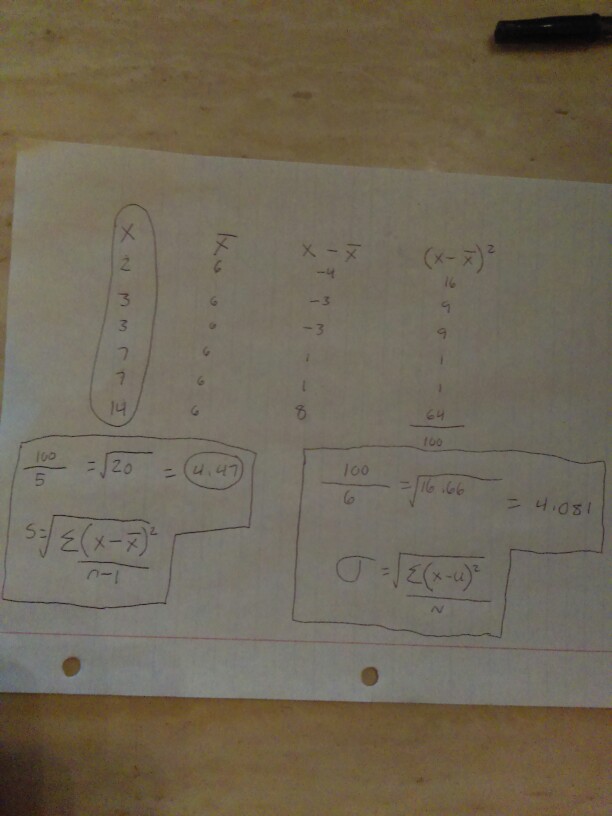 x x̄ x - x̄ (x - x̄)²
2 6 -4 16
3 6 -3 9
3 6 -3 9
7 6 1 1
7 6 1 1
14 6 8 64
100
100/5 = √20 = 4.47
S = √(Σ(x - x̄)²/n-1)
100/6 = √16.66 = 4.081
σ = √(Σ(x-u)²/N)